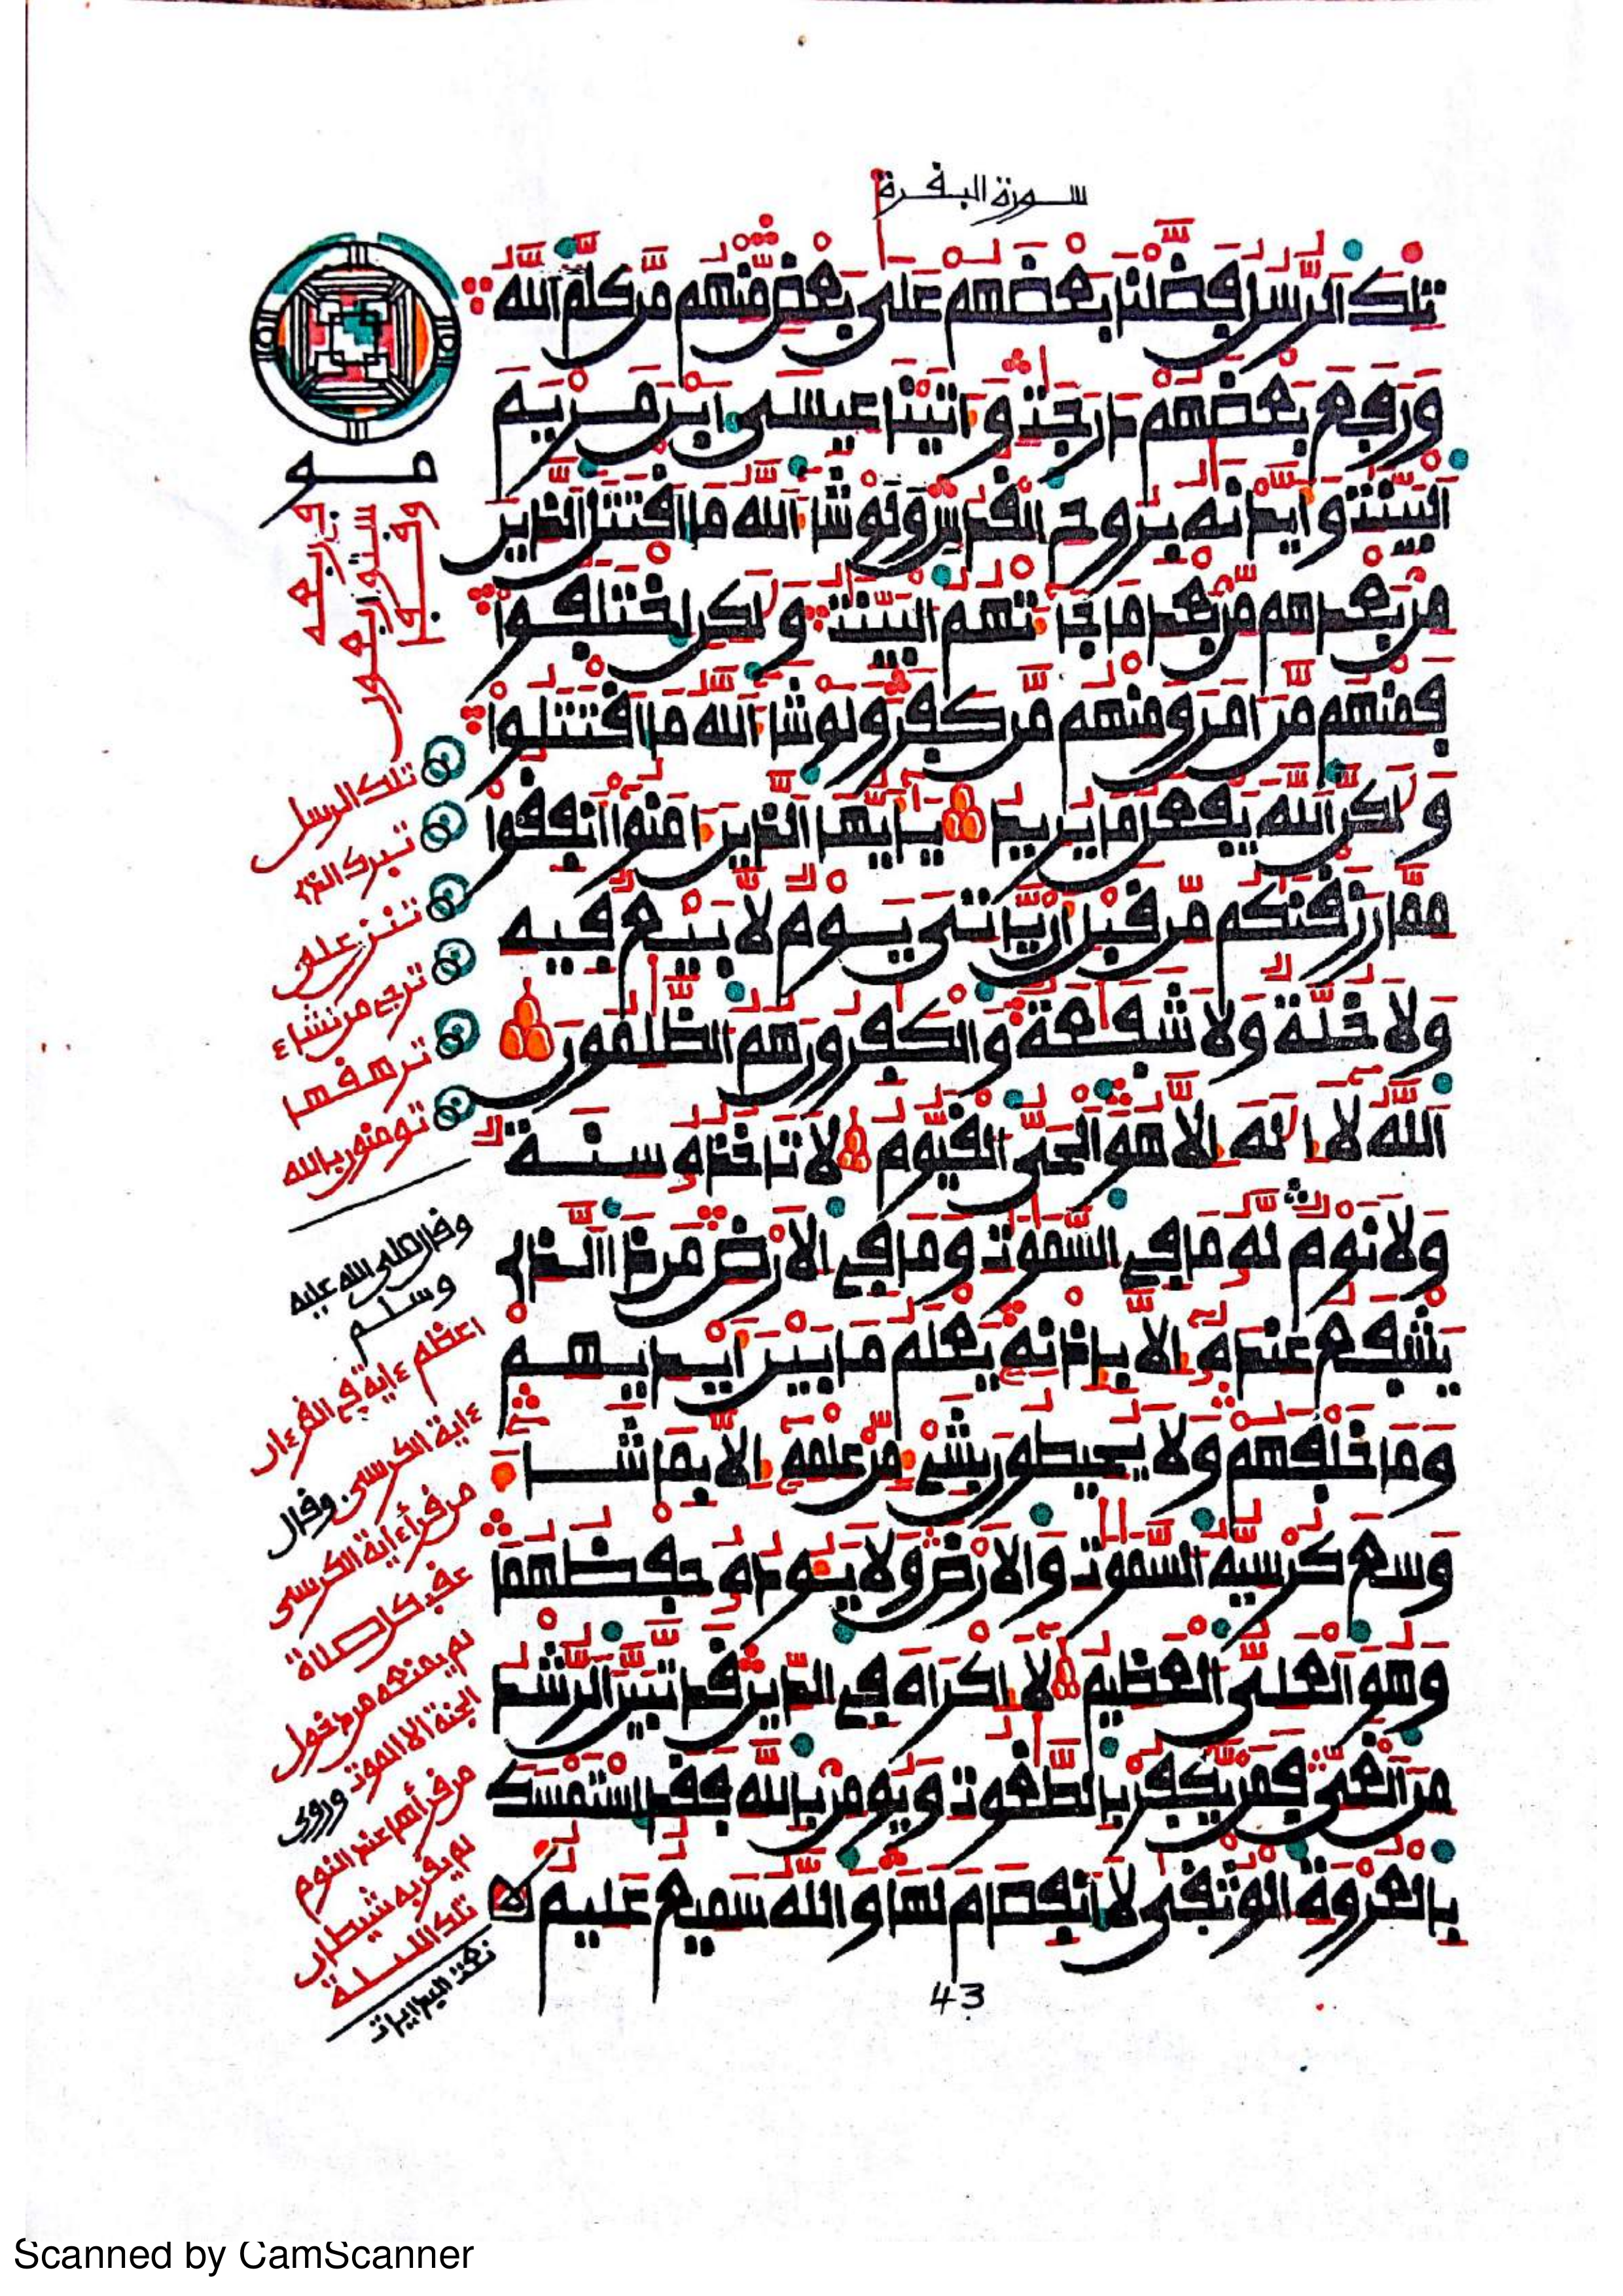 سورة البقرة
تلك الرسل فضلنا بعضهم على بعض منهم من كلم الله
ورفع بعضهم درجت و اتينا عيسى ابن مريم
البينت و ايدنه بروح القدس ولو شا الله ما اقتتل الذين
من بعدهم من بعد ما جا تهم البينت و لكن اختلفوا
فمنهم من امن ومنهم من كفر ولو شا الله ما اقتتلوا
و لكن الله يفعل ما يريد يايها الذين امنوا انفقوا
مما رزقنكم من قبل ان ياتي يوم لا بيع فيه
ولا خلة ولا شفعة والكفرون هم الظلمون
الله لا اله الا هو الحي القيوم لا تاخذه سنة
ولا نوم له ما في السموت وما في الارض من ذا الذي
يشفع عنده الا باذنه يعلم ما بين ايديهم
وما خلفهم ولا يحيطون بشي من علمه الا بما شا
وسع كرسيه السموت والارض ولا يوده حفظهما
وهو العلي العظيم لا اكراه في الدين قد تبين الرشد
من الغي فمن يكفر بالطغوت ويومن بالله فقد استمسك
بالعروة الوثقى لا انفصام لها والله سميع عليم
تلك الرسل
تبرك الذي
تنزعلى
ترجى من تشاء
ترهقها
تومنون بالله
وقال صلى الله عليه
وسلم
اعظم ءاية في القرءان
ءاية الكرسي. وقال
من قرأ ءاية الكرسي
عقب كل صلاة
لم يمنعه من دخول
الجنة الا الموت وروى
من قرأها عند النوم
لم يقربه شيطان
تلك الليلة
43
Scanned by CamScanner